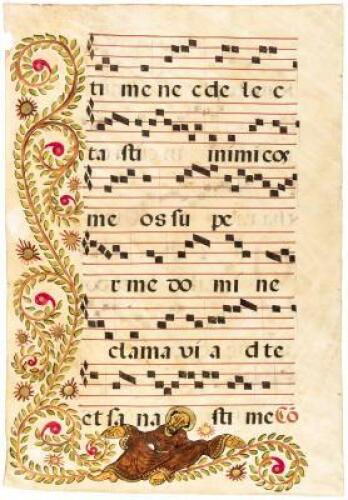 ti me ne c de le c
ta sti inimicos
me os su pe
r me do mi ne
clama vi a d te
et sa na sti me Cō